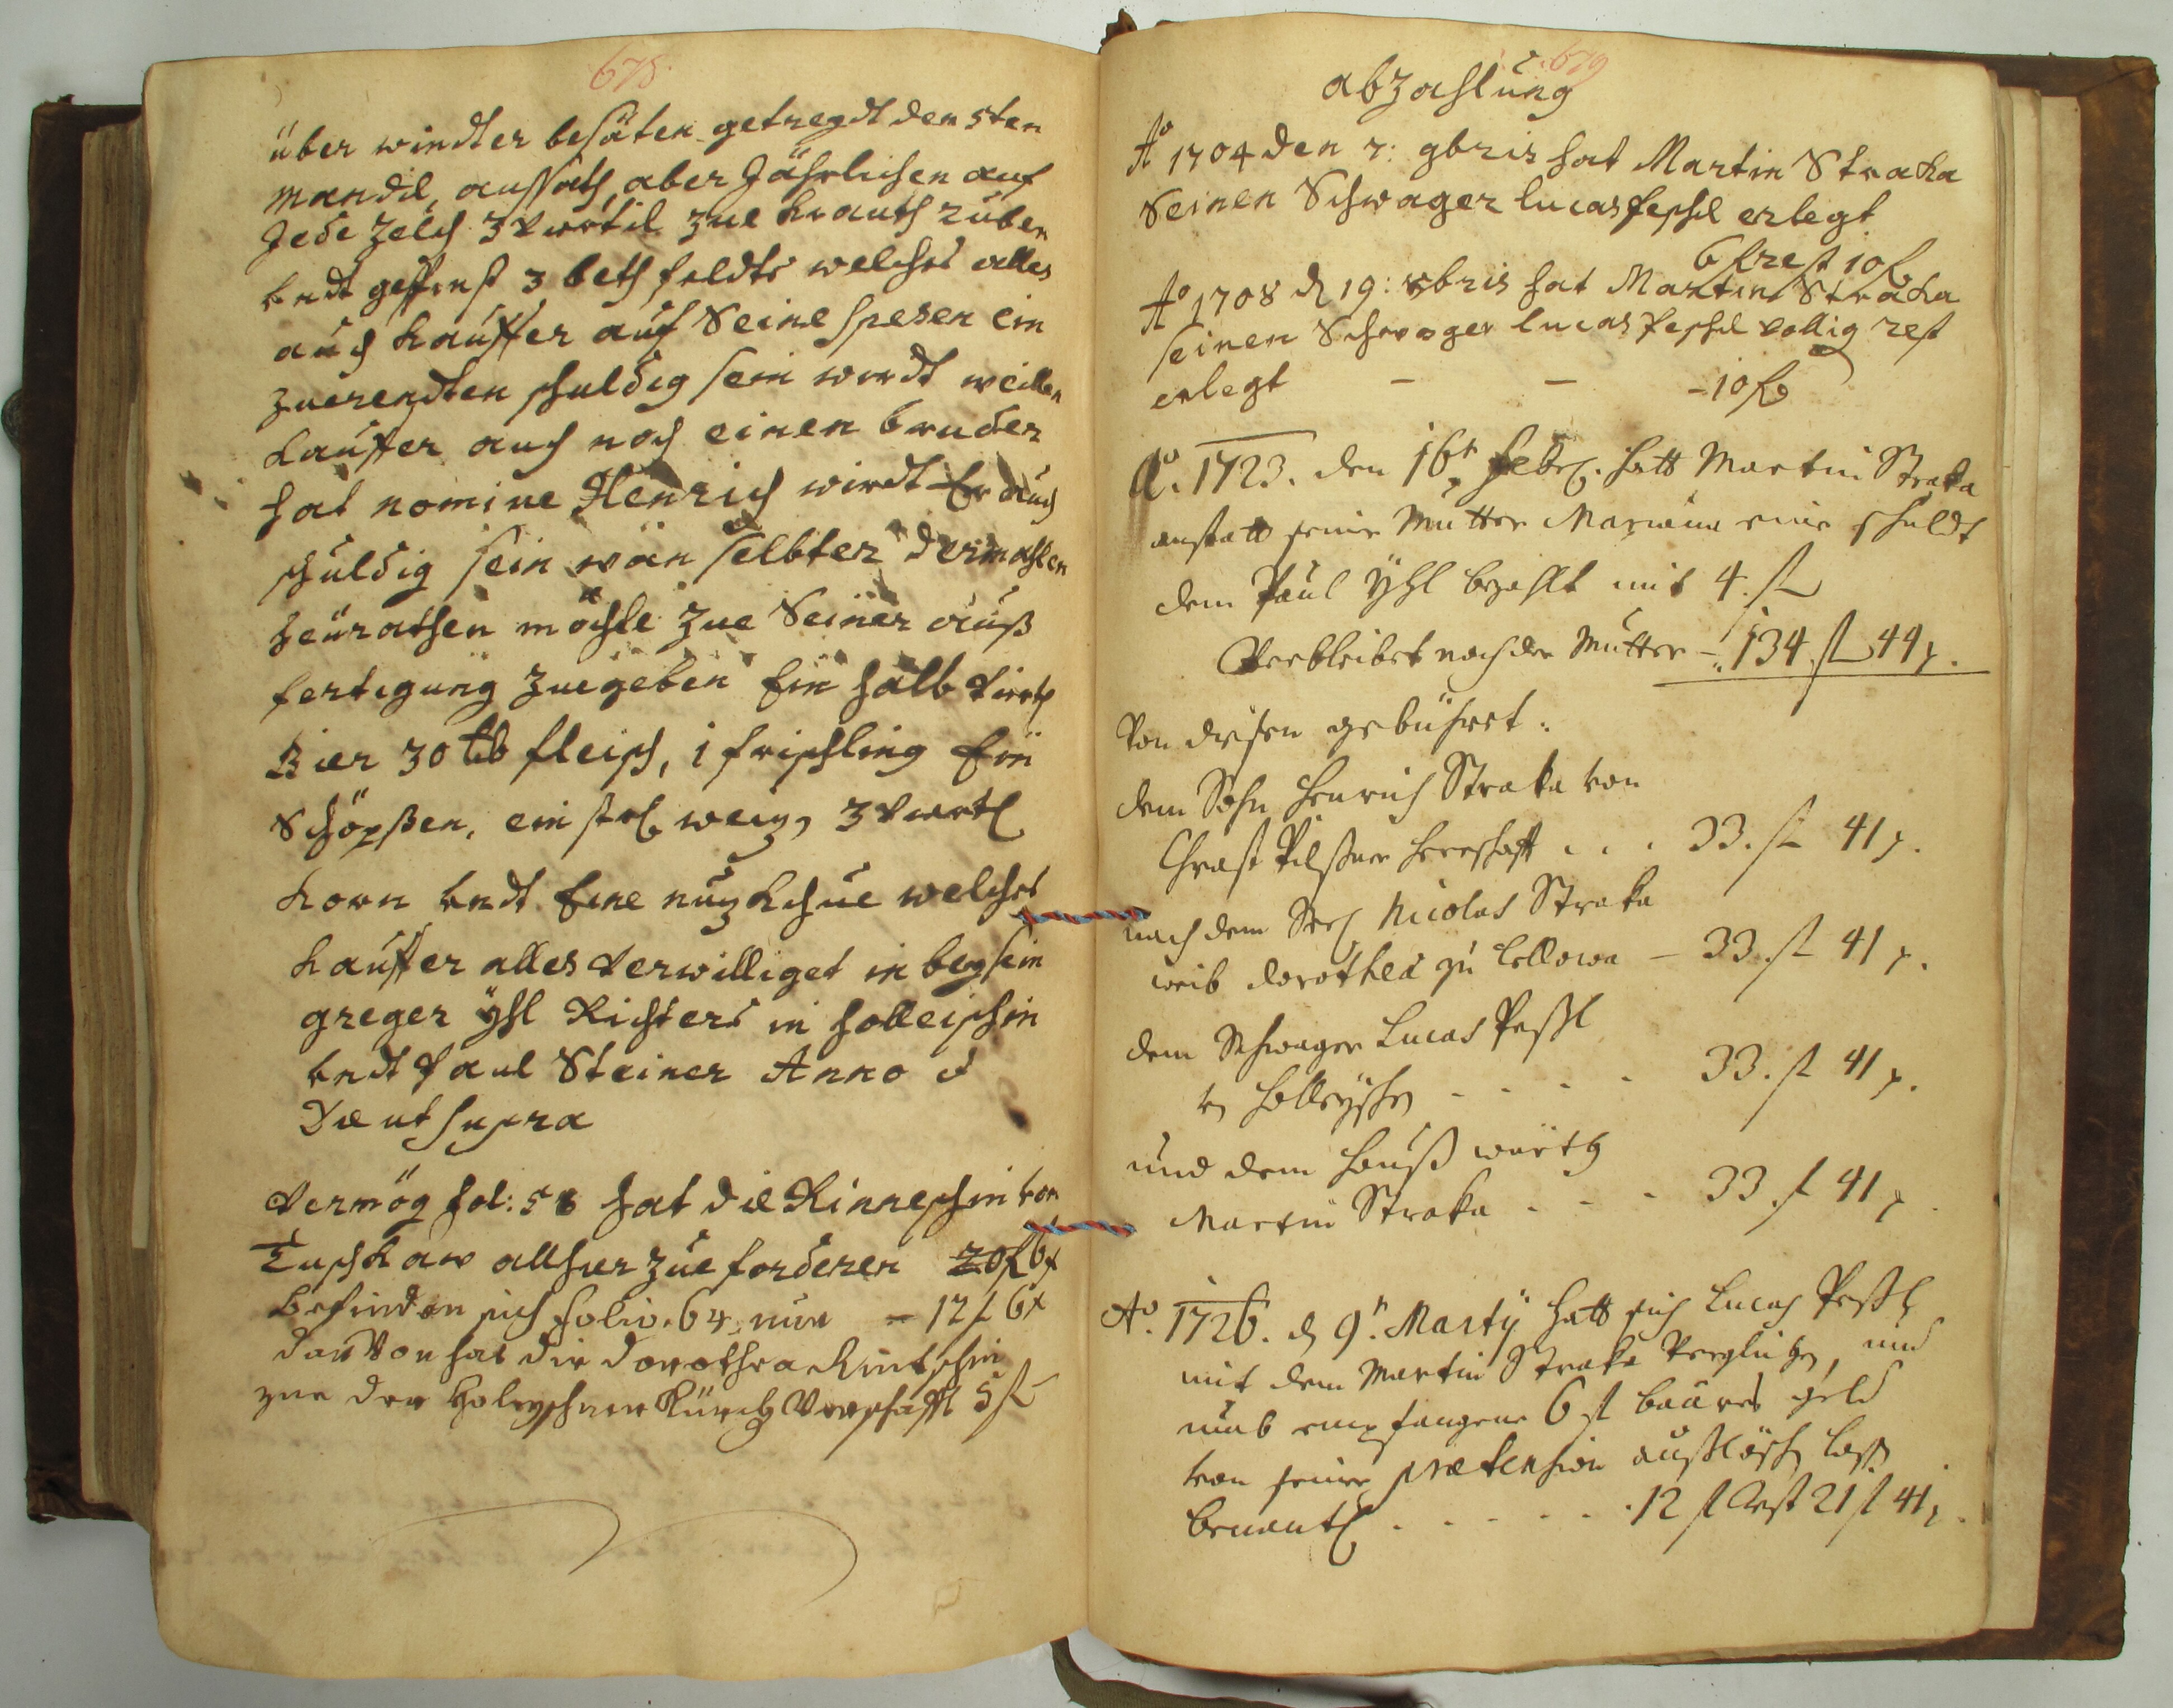 678
über windter besäten getreydt den 5ten
mandel, aussath, aber Jährlichen auf
Jede Zelch 3 Viertil zue krauth ruben
undt gespinst 3 beth feldts welches alles
auch kauffer auf Seine spesen ein
zuerendten schuldig sein wirdt weillen
kauffer auch noch einen bruder
hat nomine Henrich wirdt Er auch
schuldig sein wan selbter dermahlen
heürathen möchte zue Seiner auß
fertigung zuegeben Ein halb Viertl
Bier 30 lb fleisch, 1 frischling Ein
Schöpßen, ein str weiz, 3 Viertl
korn undt Eine nuzkhue welches
kauffer alles verwilliget in beysein
greger ÿhl Richters in holleischin
undt Paul Steiner Anno
Die ut supra
Vermög fol: 58 hat die Rinneschin von
Tuschkaw allhier zue forderen 20 f 6 x
befinden sich folio. 64 nur - 12 f 6 x
dauVon hat die dorothea
zue der Holeyschner Kürch Verschafft 5 f
679
abzahlung
Ao 1704 den 7: 9bris hat Martin Straka
Seinen Schwager lucas Peschl erlegt
6 f rest 10 f
Ao 1708 d 19: xbris hat Martin Straka
seinen Schwager lucas Peschl vollig rest
erlegt - - - 10 f
Ao. 1723. den 16t Febr. hatt Martin Straka
anstatt seiner Mutter Mariana eine schuldt
dem Paul Ÿhl bezahlt mit 4. f
Verbleibet nach der Mutter - 134 f 44 x.
Von diesen gebühret:
dem Sohn Henrich Straka von
Chrast Pilßner Herrschafft . . . 33. f 41 x.
nach dem Seel Nicolas Straka
weib dorothea zu Lellowa - 33. f 41 x.
dem Schwager Lucas Peßl
v Holleyschen - - - - 33. f 41 x.
und dem Hauß würth
Martin Straka . - - - 33. f 41 x.
Ao. 1726. d 9t. Martÿ hatt sich Lucas Peßl
mit dem Martin Straka Verglichen, und
umb empfangene 6 f baares geld
von seiner prætension außlöschen lassen
benentl . - - - - . 12 f Rest 21 f 41 x.